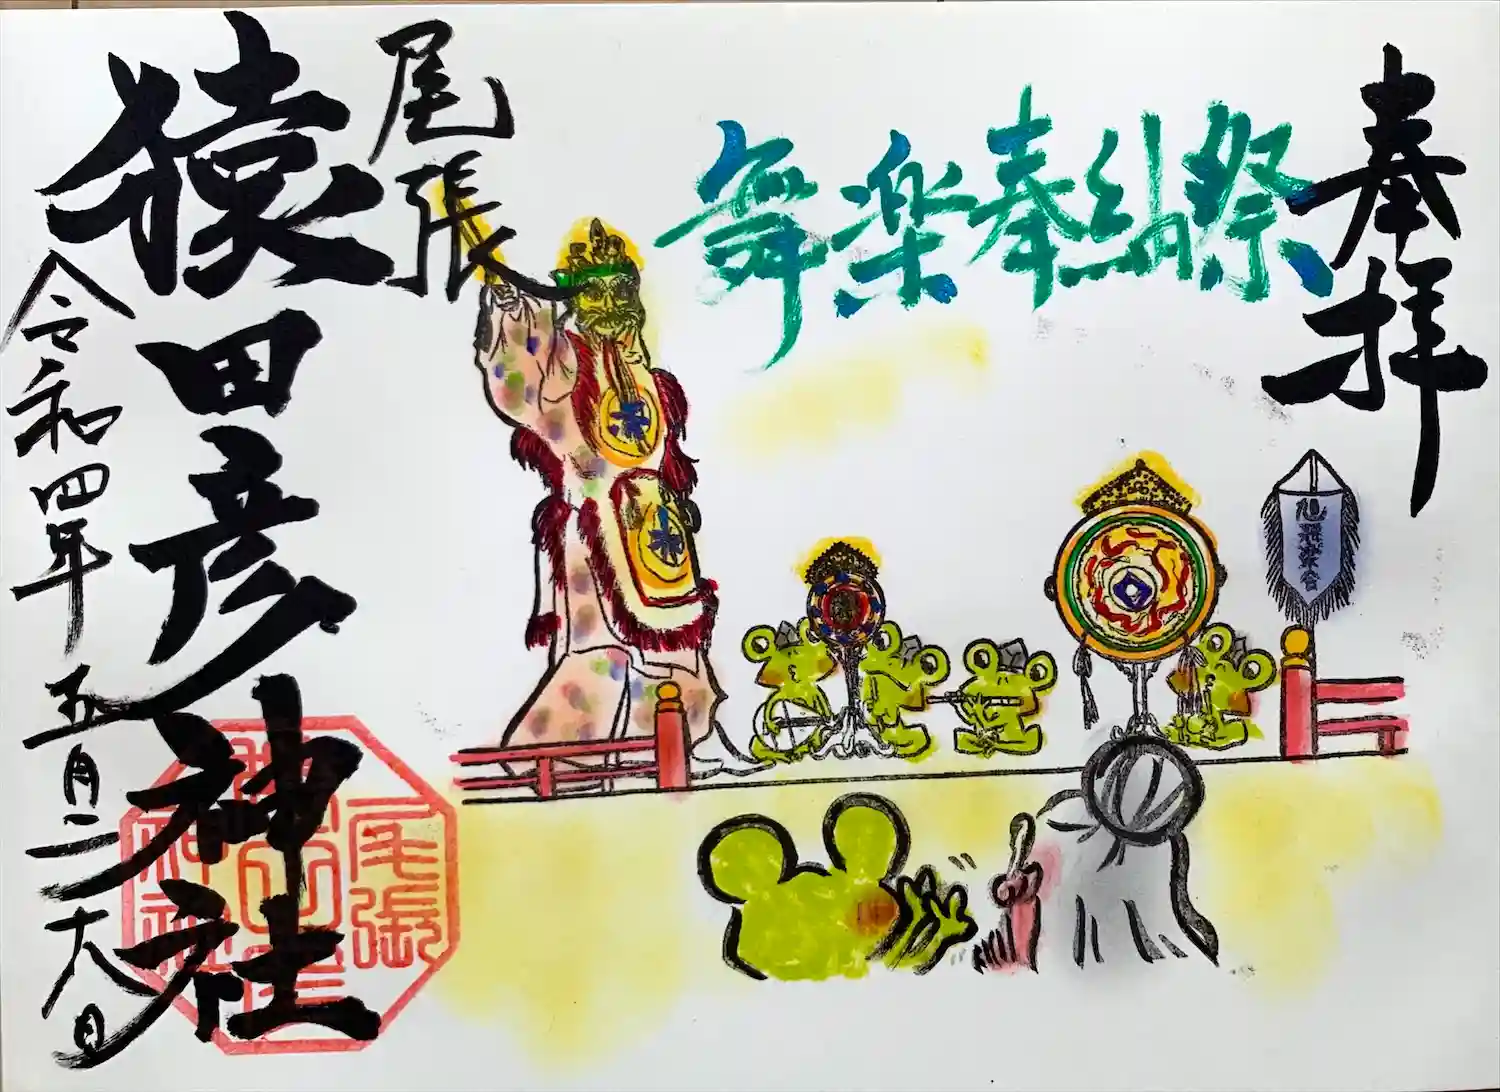 奉拝
舞楽奉納祭
尾張
猿田彦神社
令和四年五月二十八日
尾張
神社